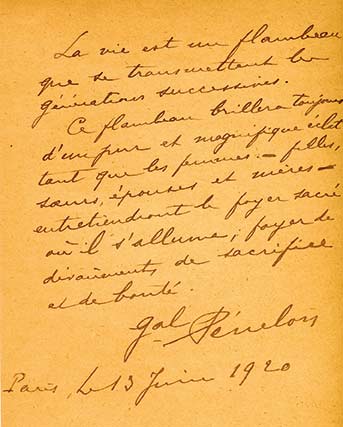 La vie est un flambeau
que se transmettent les
générations successives.
Ce flambeau brillera toujours
d'un pur et magnifique éclat
tant que les femmes — filles,
sœurs, épouses et mères —
entretiendront le foyer sacré
où il s'allume, foyer de
dévouements, de sacrifice
et de bonté.
Gal Pénelon
Paris, le 13 Juin 1920